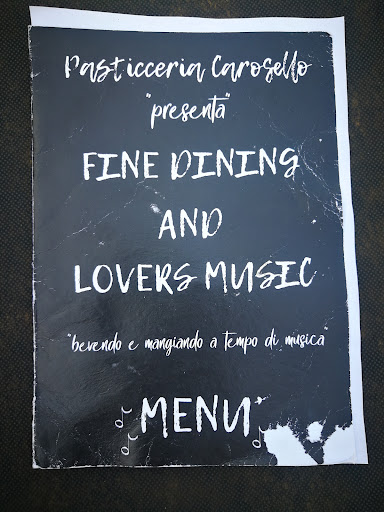 Pasticceria Carosello
"presenta"
FINE DINING
AND
LOVERS MUSIC
"bevendo e mangiando a tempo di musica"
MENU